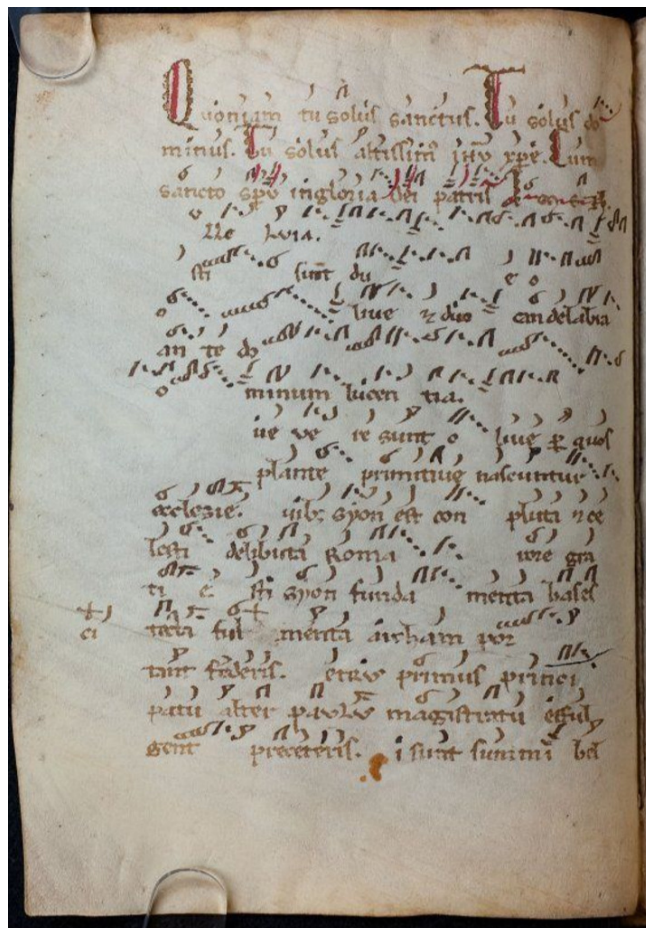 Quoniam tu solus sanctus. Tu solus do
minus. Tu solus altissim' ihu xpe. Cum
sancto spu ingloria dei patris
lle luia.
sti sunt du e o
o live & duo candelabra
an te do
o minum lucen tia.
ue ve re sunt o live p quos
plante primitive nascuntur
ecclezie. uib; syon est con pluta & ce
lesti delibuta Roma rore gra
ti e. sti syon funda menta bases
ci tecta ful menta archam por
tant federis. etrus primus princi
patu alter paulus magistratu efful
gent preceteris. i sunt summi bel